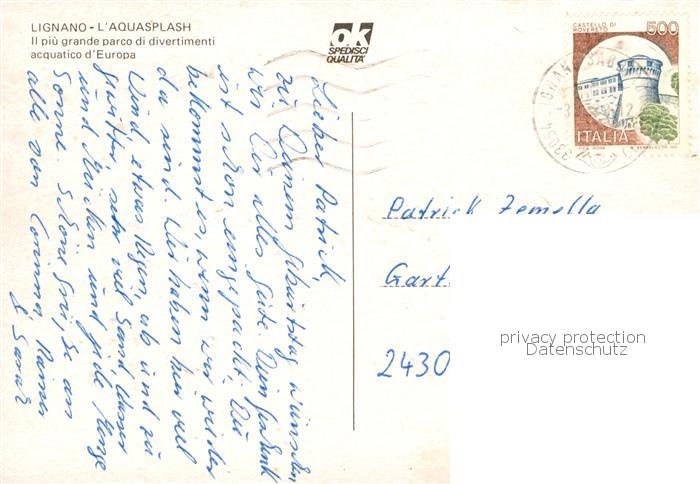 LIGNANO - L'AQUASPLASH
Il più grande parco di divertimenti
acquatico d'Europa
ok
SPEDISCI
QUALITA'
CASTELLO DI
ROVERETO
500
ITALIA
33054
Lieber Patrick,
zu Deinem Geburtstag wünschen
wir Dir alles Gute. Dein Geschenk
ist schon eingepackt. Du
bekommst es, wenn wir wieder
da sind. Wir haben hier viel
Wind, etwas Regen, ab und zu
Gewitter, sehr viel Sand, Wasser
und Märchen und jede Menge
Sonne. Schöne Grüße an
alle von Corinna, Rainer
& Sarah
Patrick Zemella
Gart
2430
privacy protection
Datenschutz